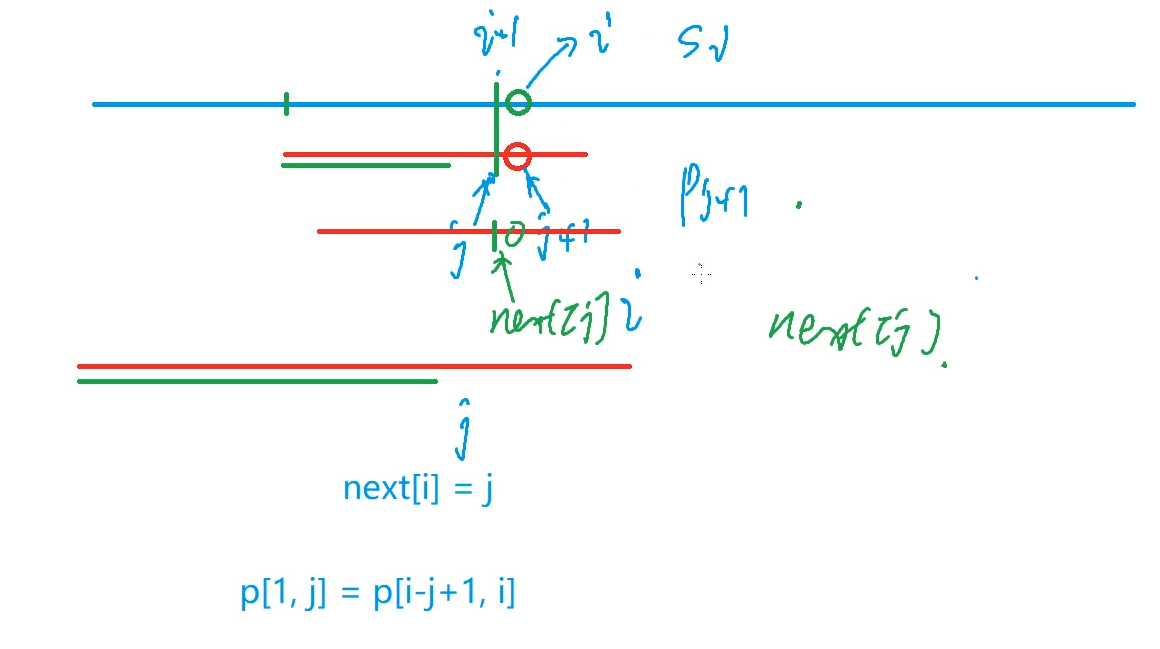 i-1 i Si
j j+1 Pj+1
next[j] i next[j]
j
next[i] = j
p[1, j] = p[i-j+1, i]